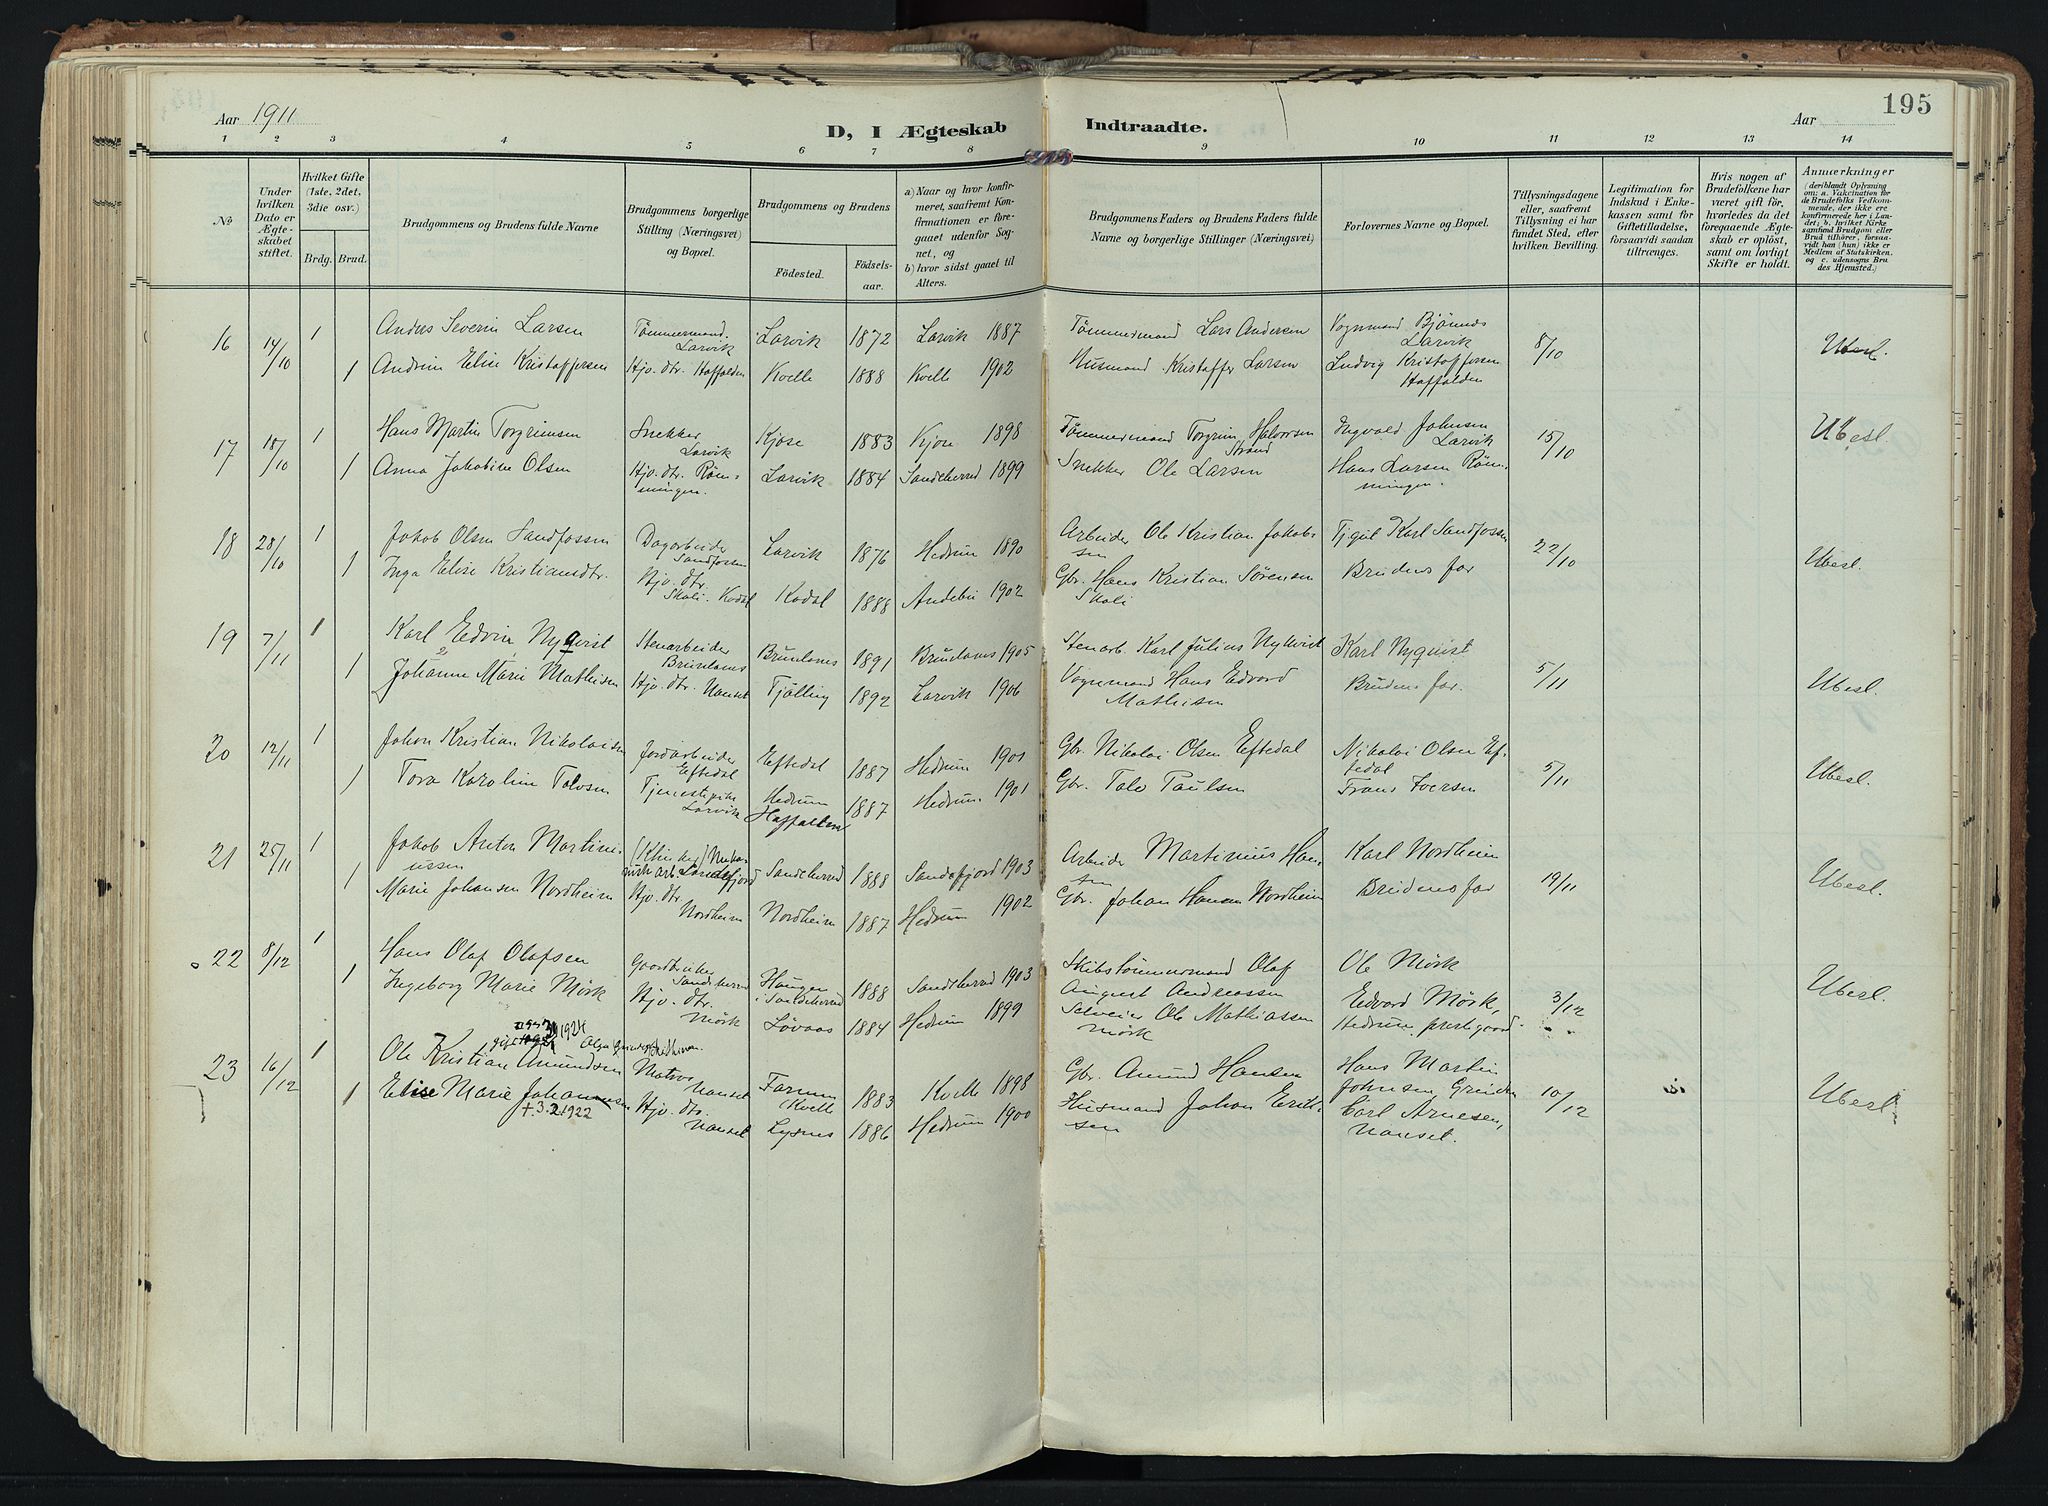 195
Aar 1911
D, I Ægteskab Indtraadte.
Aar
1 2 3 4 5 6 7 8 9 10 11 12 13 14
No
Under hvilken Dato er Ægteskabet stiftet.
Hvilket Gifte (1ste, 2det, 3die osv.)
Brdg. Brud.
Brudgommens og Brudens fulde Navne
Brudgommens borgerlige Stilling (Næringsvei) og Bopæl.
Brudgommens og Brudens
Födested.
Födselsaar.
a) Naar og hvor konfirmeret, saafremt Konfirmationen er foregaaet udenfor Sognet, og
b) hvor sidst gaaet til Alters.
Brudgommens Faders og Brudens Faders fulde Navne og borgerlige Stillinger (Næringsvei)
Forlovernes Navne og Bopæl.
Tillysningsdagene eller, saafremt Tillysning ei har fundet Sted, efter hvilken Bevilling.
Legitimation for Indskud i Enkekassen samt for Giftetilladelse, forsaavidt saadan tiltrænges.
Hvis nogen af Brudefolkene har været gift för, hvorledes da det foregaaende Ægteskab er oplöst, samt om lovligt Skifte er holdt.
Anmærkninger
(deriblandt Oplysning om: a. Vakcination for de Brudefolks Vedkommende, der ikke ere konfirmerede her i Landet; b. hvilket Kirkesamfund Brudgom eller Brud tilhörer, forsaavidt han (hun) ikke er Medlem af Statskirken, og c. udensogns Brudes Hjemsted.)
16 14/10 1 Anders Severin Larsen Tömmermand Larvik Larvik 1872 Larvik 1887 Tömmermand Lars Andersen Vognmand Bjönnes Larvik 8/10 Ubesl.
1 Andrine Elise Kristoffersen Hjv. dtr. Haffalden Kvelle 1888 Kvelle 1902 Husmand Kristoffer Larsen Ludvig Kristoffersen Haffalden
17 18/10 1 Hans Martin Torgrimsen Snekker Larvik Kjose 1883 Kjose 1898 Tömmermand Torgrim Halvorsen Strand Ingvald Johnsen Larvik 15/10 Ubesl.
1 Anna Jakobine Olsen Hjv. dtr. Römmingen. Larvik 1884 Sandeherred 1899 Snekker Ole Larsen Hans Larsen Römmingen.
18 28/10 1 Jakob Olsen Sandfossen Dagarbeider Sandfossen Larvik 1876 Hedrum 1890 Arbeider Ole Kristian Jakobsen Karl Sandfossen 22/10 Ubesl.
1 Inga Elise Kristiansdtr. Hjv. dtr. Skoli. Kodal Kodal 1888 Andebu 1902 Gbr. Hans Kristian Sörensen Skoli Brudens far
19 7/11 1 Karl Edvin Nyqvist Stenarbeider Brunlanes Brunlanes 1891 Brunlanes 1905 Stenarb. Karl Julius Nykvist Karl Nyqvist 5/11 Ubesl.
1 Johanne Marie Mathisen Hjv. dtr. Nanset Tjölling 1892 Larvik 1906 Vognmand Hans Edvard Mathisen Brudens far.
20 12/11 1 Johan Kristian Nikolaisen Jordarbeider Eftedal Eftedal 1887 Hedrum 1901 Gbr. Nikolai Olsen Eftedal Nikolai Olsen Eftedal 5/11 Ubesl.
1 Tora Karoline Talvsen Tjenestepike Larvik Hedrum Haffalden 1887 Hedrum. 1901 Gbr. Talv Paulsen Frans Iversen
21 25/11 1 Jakob Anton Martiniussen Sandeherred 1888 Sandefjord 1903 Arbeider Martinius Hansen Karl Nordheim 19/11 Ubesl.
1 Marie Johansen Nordheim Hjv. dtr. Nordheim Nordheim 1887 Hedrum 1902 Gbr. Johan Hansen Nordheim Brudens far
22 8/12 1 Hans Olaf Olafsen Gaardbruker Sandeherred Haugen i Sandeherred 1888 Sandeherred 1903 Skibstömmermand Olaf August Andreassen Ole Mörk 3/12 Ubesl.
1 Ingeborg Marie Mörk Hjv. dtr. Mörk Lövaas 1884 Hedrum 1899 Selveier Ole Mathiassen Mörk Edvard Mörk, Hedrum prestegaard
1924 Olga
23 16/12 1 Ole Kristian Amundsen Matros Nanset Farmen Kvelle 1883 Kvelle 1898 Gbr. Amund Hansen Hans Martin Johnsen 10/12 Ubesl.
1 Elise Marie Johannsen Hjv. dtr. Nanset Lysnes 1886 Hedrum 1900 Husmand Johan Eriksen Carl Arnesen, Nanset.
+ 3.2.1922